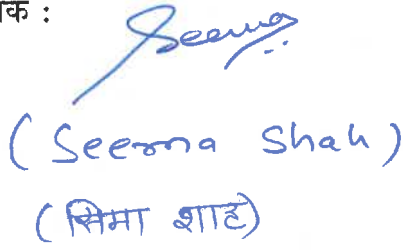 क :
Seema
(Seema Shah)
(सिमा शाह)